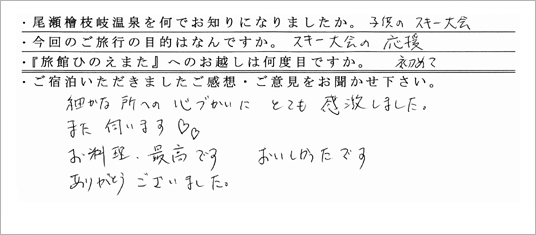 ・尾瀬檜枝岐温泉を何でお知りになりましたか。 子供の スキー大会
・今回のご旅行の目的はなんですか。 スキー大会の 応援
・『旅館ひのえまた』へのお越しは何度目ですか。 初めて
・ご宿泊いただきましたご感想・ご意見をお聞かせ下さい。
細かな所への 心づかいに とても 感激しました。
また 伺います♡♡
お料理、最高です おいしかったです
ありがとう ございました。